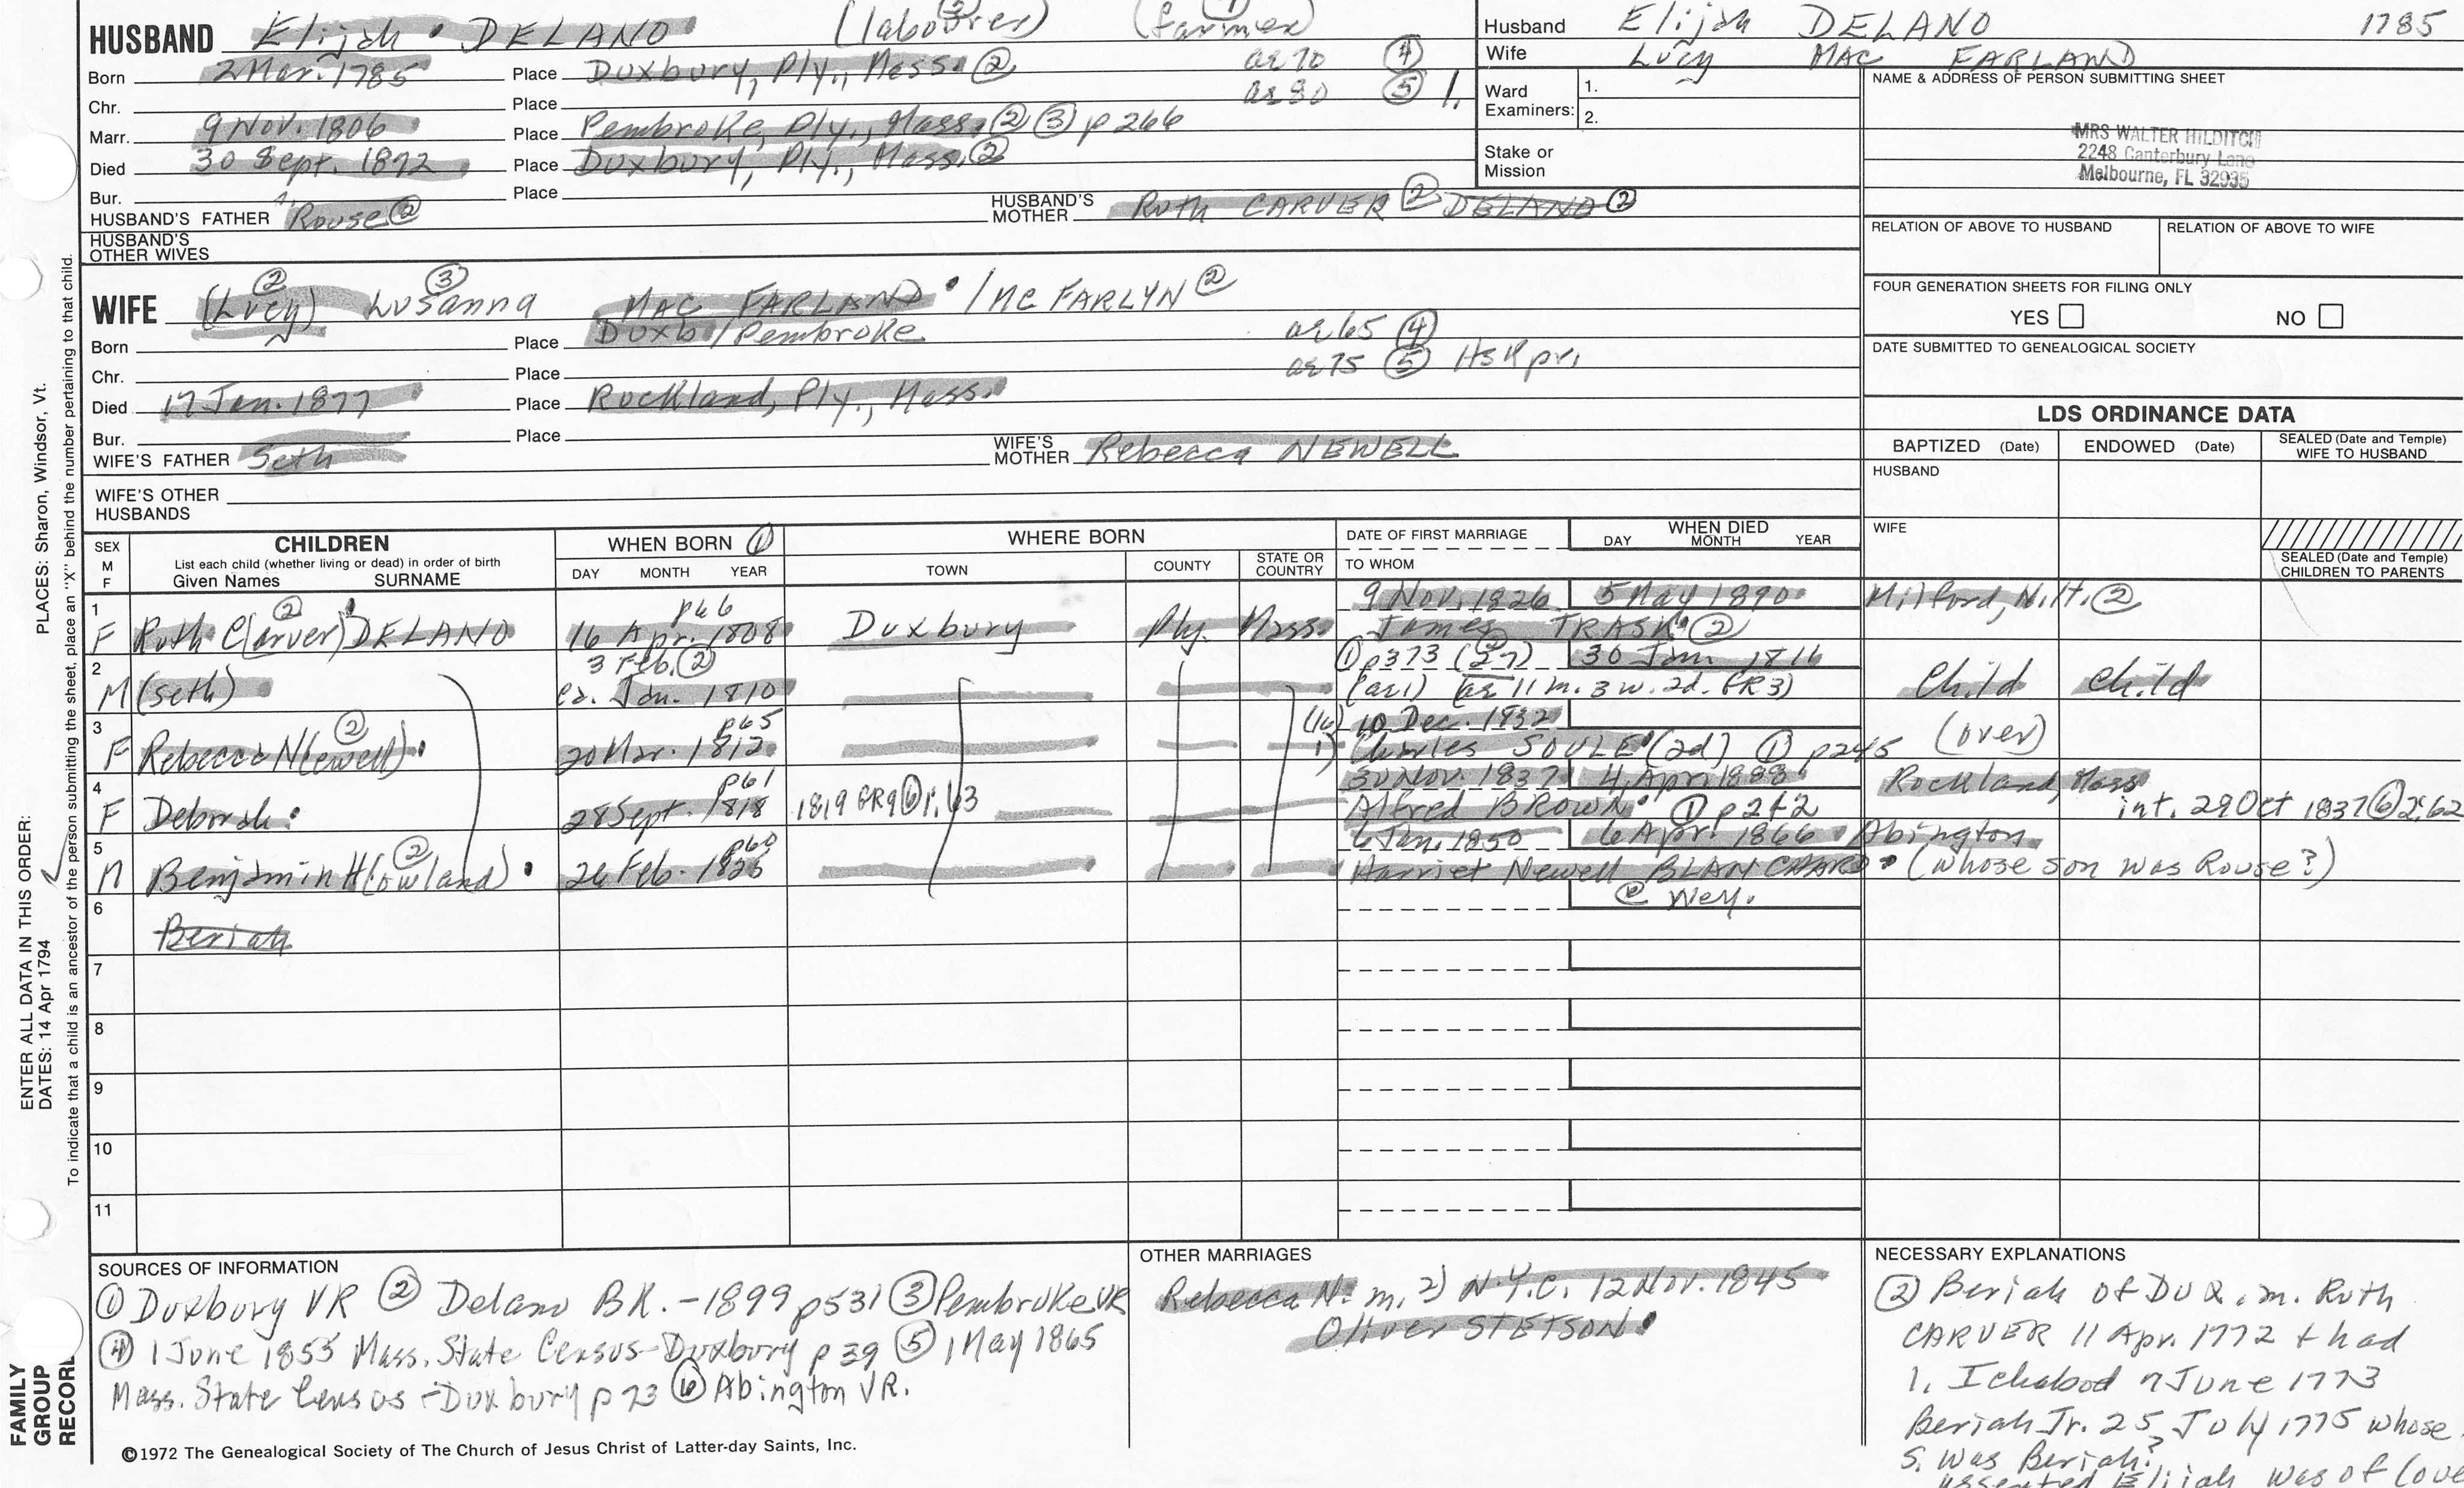 HUSBAND Elijah DELANO (labourer) (farmer)
Born 2 Mar. 1785 Place Duxbury, Ply., Mass. ② ae 70 ④
Chr. Place ae 80 ⑤ 1.
Marr. 9 Nov. 1806 Place Pembroke, Ply., Mass. ② ③ p 266
Died 30 Sept. 1872 Place Duxbury, Ply., Mass. ②
Bur. Place
HUSBAND'S FATHER Rouse ② HUSBAND'S MOTHER Ruth CARVER ② DELANO ②
HUSBAND'S OTHER WIVES
② ③
WIFE (Lucy) Lusanna MAC FARLAND / MC FARLYN ②
Born Place Duxb/Pembroke ae 65 ④
Chr. Place ae 75 ⑤ Hskpr.
Died 17 Jan. 1877 Place Rockland, Ply., Mass.
Bur. Place
WIFE'S FATHER Seth WIFE'S MOTHER Rebecca NEWELL
WIFE'S OTHER HUSBANDS
Husband Elijah DELANO 1785
Wife Lucy MAC FARLAND
Ward Examiners: 1.
2.
Stake or Mission
NAME & ADDRESS OF PERSON SUBMITTING SHEET
MRS WALTER HILDITCH
2248 Canterbury Lane
Melbourne, FL 32935
RELATION OF ABOVE TO HUSBAND RELATION OF ABOVE TO WIFE
FOUR GENERATION SHEETS FOR FILING ONLY
YES NO
DATE SUBMITTED TO GENEALOGICAL SOCIETY
LDS ORDINANCE DATA
BAPTIZED (Date) ENDOWED (Date) SEALED (Date and Temple) WIFE TO HUSBAND
HUSBAND
WIFE
SEALED (Date and Temple) CHILDREN TO PARENTS
SEX M F
CHILDREN
List each child (whether living or dead) in order of birth
Given Names SURNAME
WHEN BORN ①
DAY MONTH YEAR
WHERE BORN
TOWN COUNTY STATE OR COUNTRY
DATE OF FIRST MARRIAGE
TO WHOM
WHEN DIED
DAY MONTH YEAR
1 ② p66 9 Nov. 1826 5 May 1890 Milford, N.H. ②
F Ruth C(arver) DELANO 16 Apr. 1808 Duxbury Ply. Mass James TRASK ②
2 3 Feb. ② ① p373 (27) 30 Jan 1811
M (Seth) ca. Jan. 1810 (ae 1) (ae 11 m. 3 w. 2d. GR3) Child Child
3 ② p65 10 Dec. 1832 (over)
F Rebecca N(ewell) 20 Mar. 1812 1) Charles SOULE (2d) ① p245
4 p61 30 Nov. 1837 4 Apr. 1888 Rockland, Mass
F Deborah 28 Sept. 1818 1819 GR9 ⑥ 1:63 Alfred BROWN ① p 242 int. 29 Oct 1837 ⑥ 2:62
5 ② p60 6 Jan. 1850 6 Apr. 1866 Abington
M Benjamin H(owland) 26 Feb. 1825 Harriet Newell BLANCHARD (whose son was Rouse?)
6 @ Wey.
Beriah
7
8
9
10
11
PLACES: Sharon, Windsor, Vt.
ENTER ALL DATA IN THIS ORDER:
DATES: 14 Apr 1794
To indicate that a child is an ancestor of the person submitting the sheet, place an "X" behind the number pertaining to that child.
FAMILY GROUP RECORD
SOURCES OF INFORMATION
① Duxbury VR ② Delano BK. - 1899 p531 ③ Pembroke VR
④ 1 June 1855 Mass. State Census - Duxbury p 39 ⑤ 1 May 1865
Mass. State Census - Duxbury p 73 ⑥ Abington VR.
©1972 The Genealogical Society of The Church of Jesus Christ of Latter-day Saints, Inc.
OTHER MARRIAGES
Rebecca N. m. 2) N.Y.C. 12 Nov. 1845
Oliver STETSON
NECESSARY EXPLANATIONS
② Beriah of DUX. m. Ruth
CARVER 11 Apr. 1772 + had
1. Ichabod 7 June 1773
Beriah Jr. 25 July 1775 whose
s. was Beriah?
asserted Elijah was of